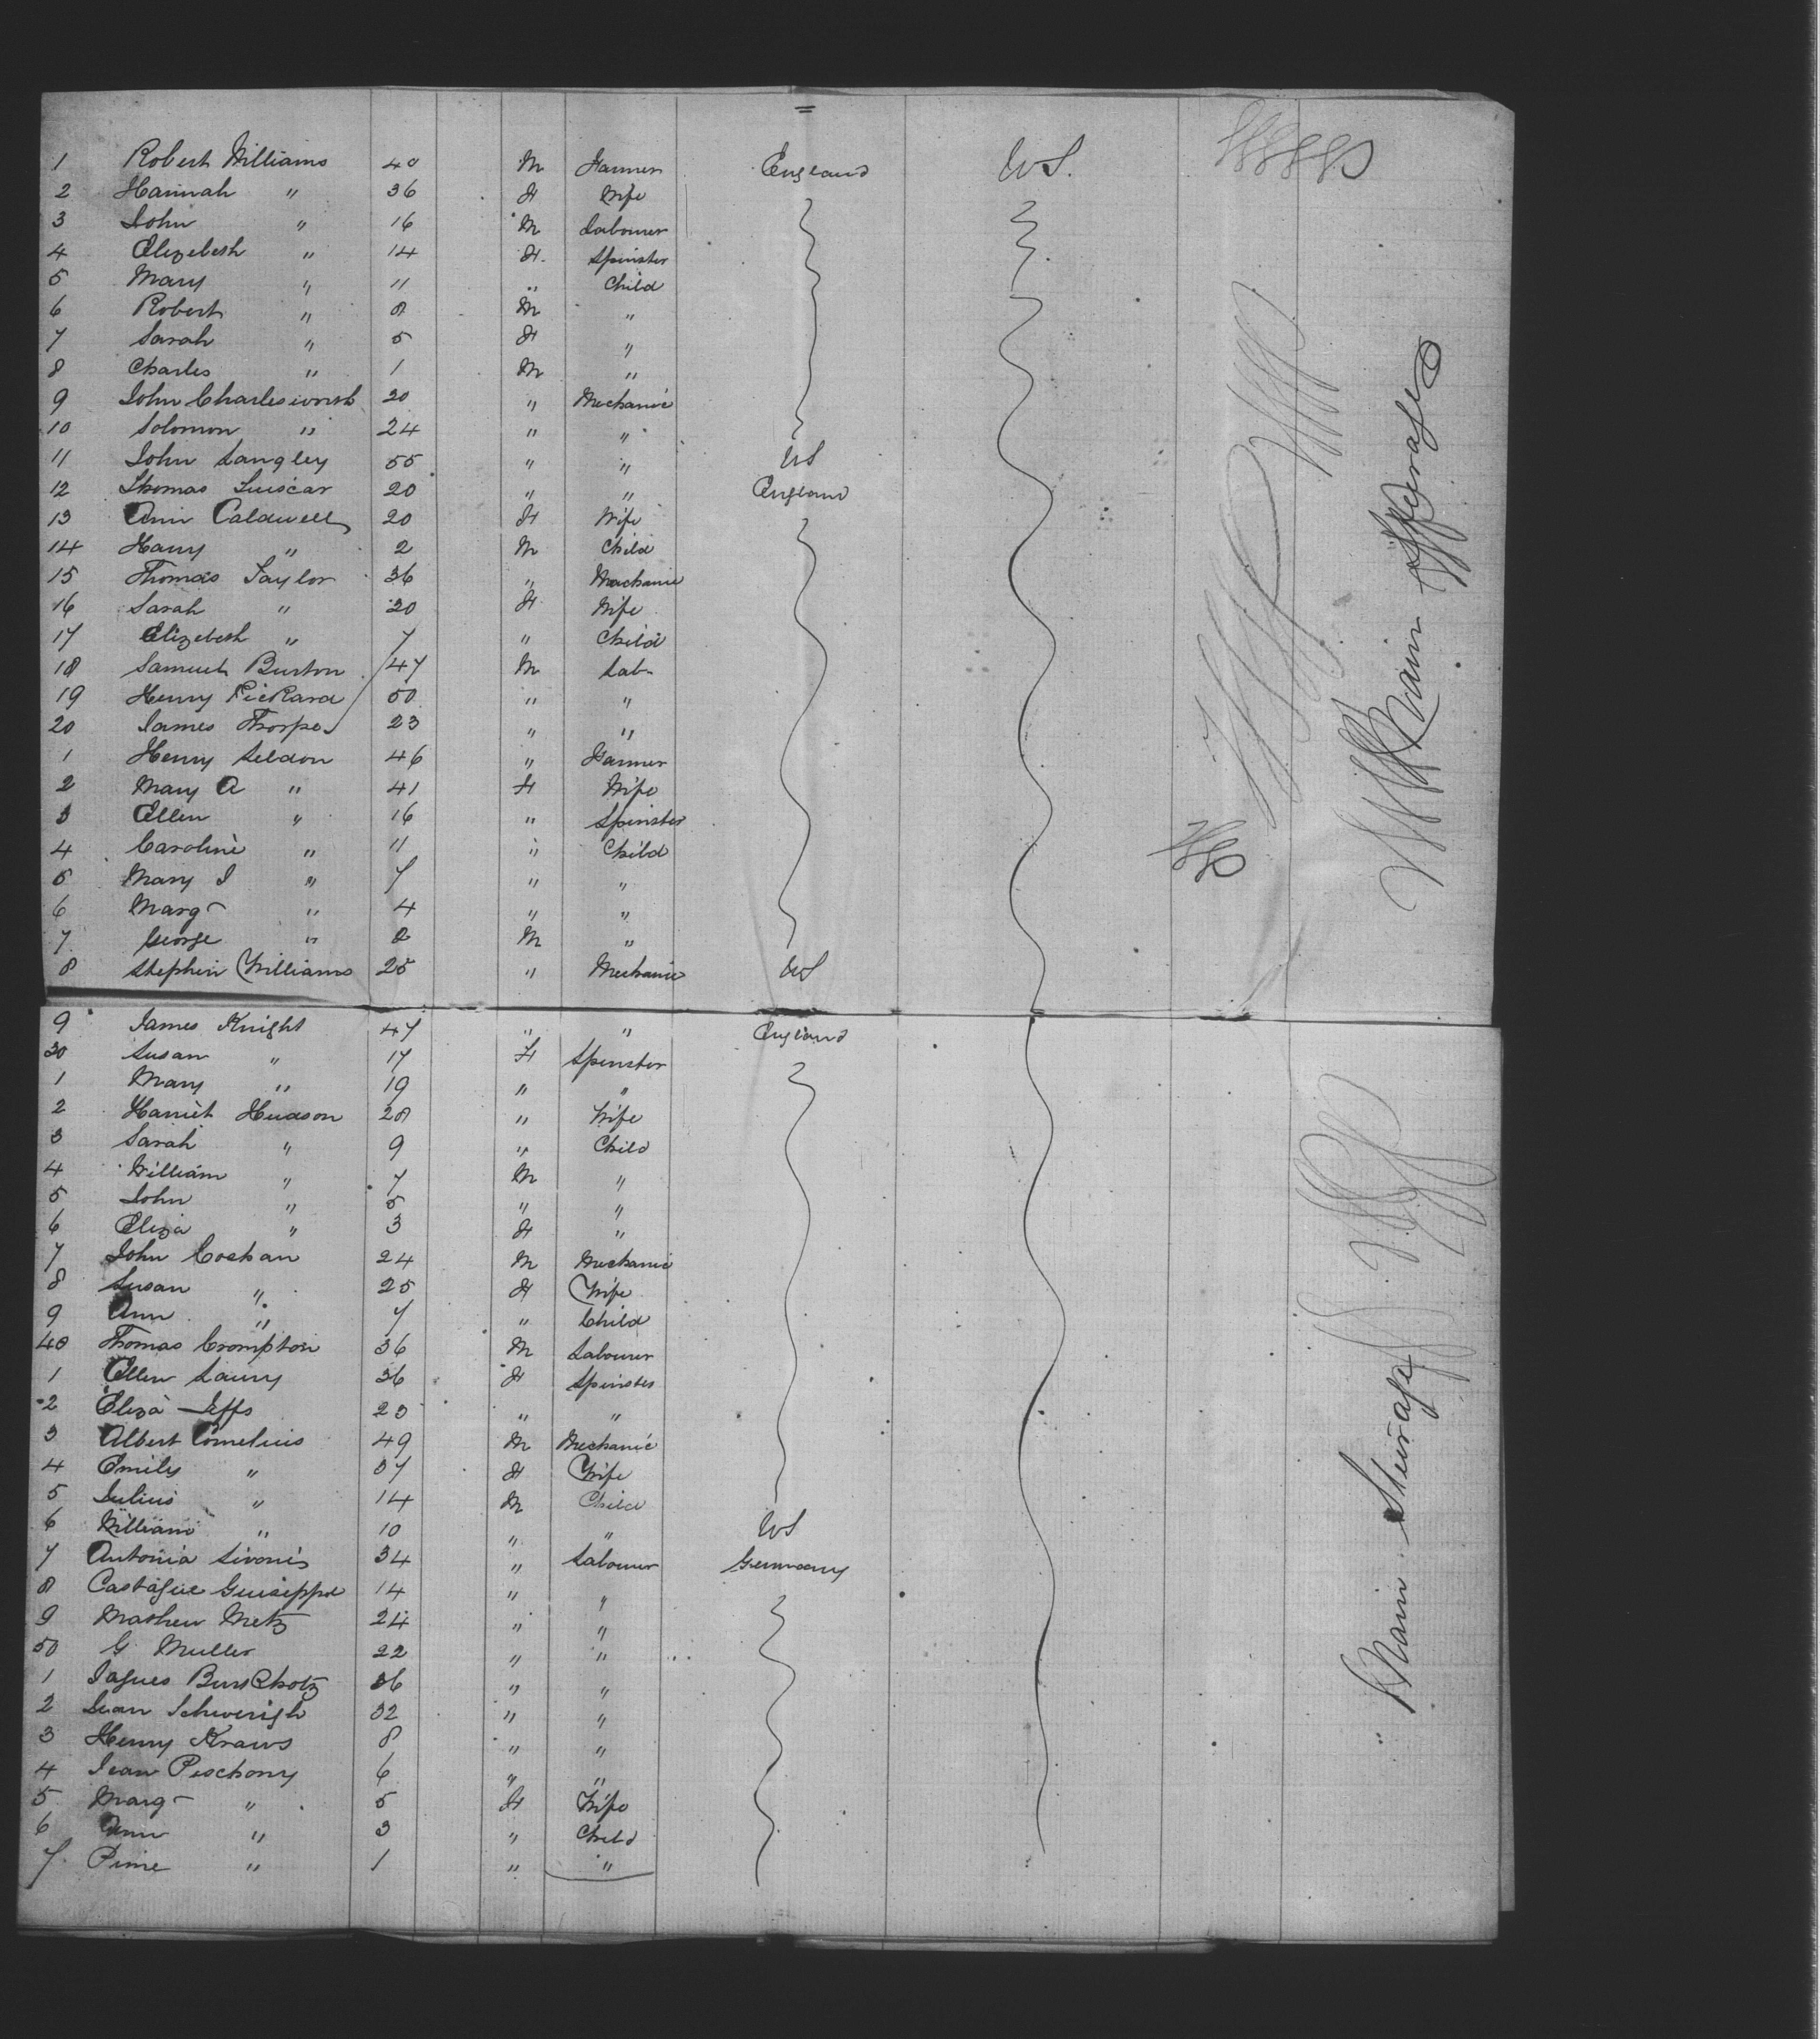 1 Robert Williams 40 M Farmer England US.
2 Hannah " 36 F Wife
3 John " 16 M Labourer
4 Elizebeth " 14 F. Spinster
5 Mary " 11 " Child
6 Robert " 8 M "
7 Sarah " 5 F "
8 Charles " 1 M "
9 John Charlesworth 20 " Mechanic
10 Solomon " 24 " "
11 John Langley 55 " " US
12 Thomas 20 " " England
13 Ann Caldwell 20 F Wife
14 Harry " 2 M Child
15 Thomas Taylor 36 " Mechanic
16 Sarah " 20 F Wife
17 Elizebeth " 7 " Child
18 Samuel Burton 47 M Lab-
19 Henry Pickard 50 " "
20 James Thorpe 23 " "
1 Henry Seldon 46 " Farmer
2 Mary A " 41 F Wife
3 Ellen " 16 " Spinster
4 Caroline " 11 " Child
5 Mary J " 7 " "
6 Marg- " 4 " "
7 George " 2 M "
8 Stephen Williams 25 " Mechanic US
9 James Knight 47 " " England
30 Susan " 17 F Spinster
1 Mary " 19 " "
2 Harriet Hudson 28 " Wife
3 Sarah " 9 " Child
4 William " 7 M "
5 John " 5 " "
6 Eliza " 3 F "
7 John 24 M Mechanic
8 Susan " 25 F Wife
9 Ann " 7 " Child
40 Thomas Crompton 36 M Labourer
1 Ellen 36 F Spinster
2 Eliza Jeffs 23 " "
3 Albert Cornelius 49 M Mechanic
4 Emily " 37 F Wife
5 Julius " 14 M Child
6 William " 10 " " US
7 Antonia 34 " Labourer Germany
8 Guiseppe 14 " "
9 Mathew Metz 24 " "
50 G Muller 22 " "
1 36 " "
2 Jean 32 " "
3 Henry Kraws 8 " "
4 Jean Peschony 6 " "
5 Marg- " 5 F Wife
6 Ann " 3 " Child
7 " 1 " "
Main Steerage
Main Steerage